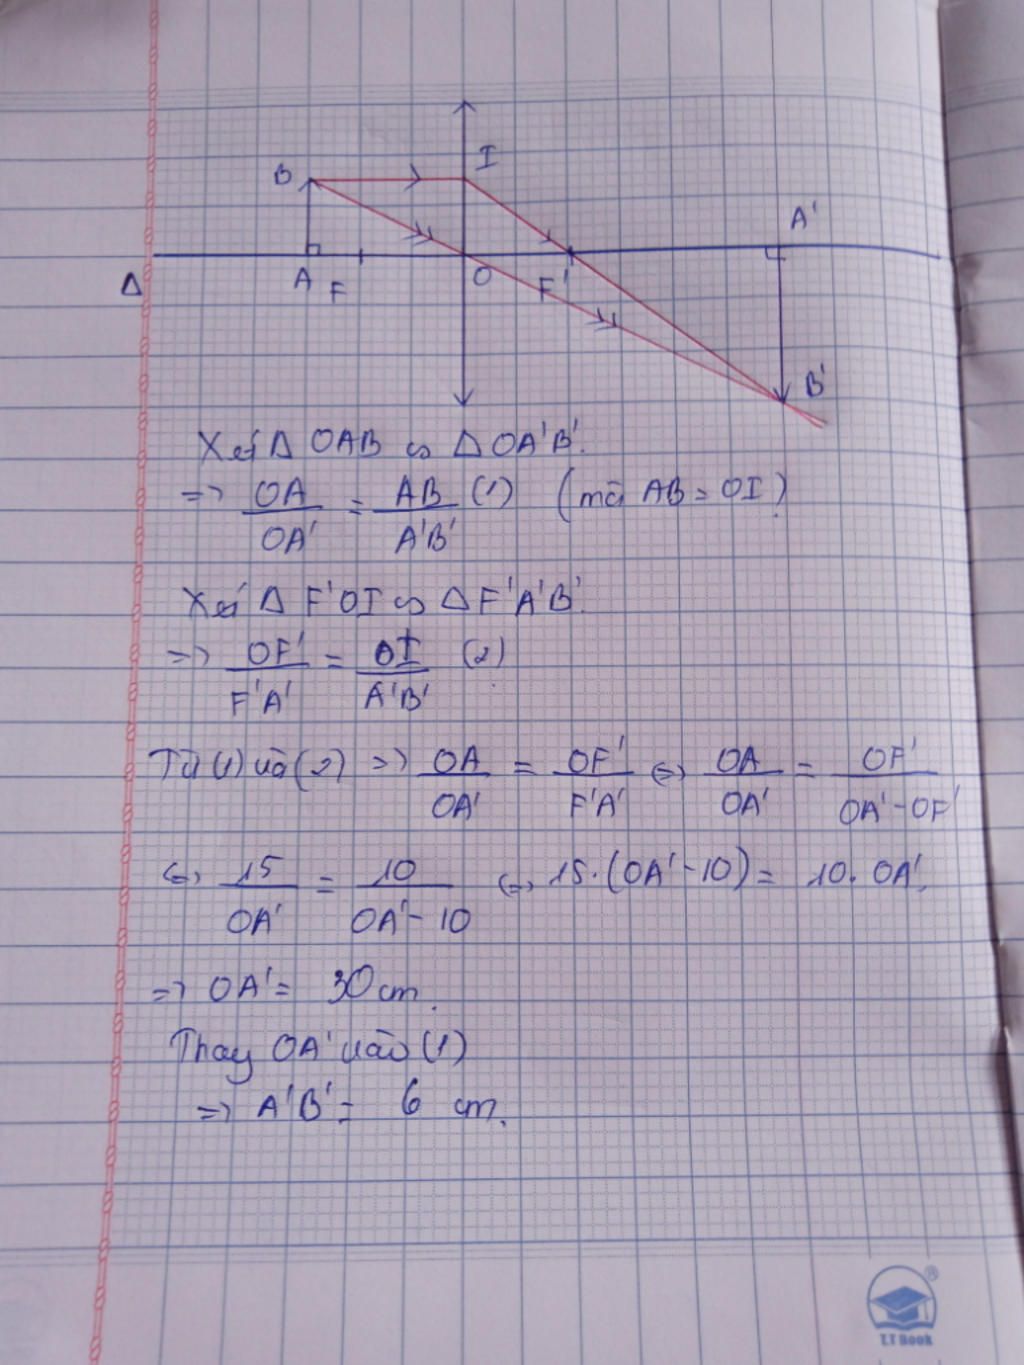 B I
A'
Δ A F O F'
B'
Xét Δ OAB ∽ Δ OA'B'.
=> OA/OA' = AB/A'B' (1) (mà AB = OI)
Xét Δ F'OI ∽ Δ F'A'B'.
=> OF'/F'A' = OI/A'B' (2)
Từ (1) và (2) => OA/OA' = OF'/F'A' <=> OA/OA' = OF'/OA'-OF'
<=> 15/OA' = 10/OA'-10 <=> 15.(OA'-10) = 10.OA'.
=> OA' = 30 cm.
Thay OA' vào (1)
=> A'B' = 6 cm.
®
T.T Book